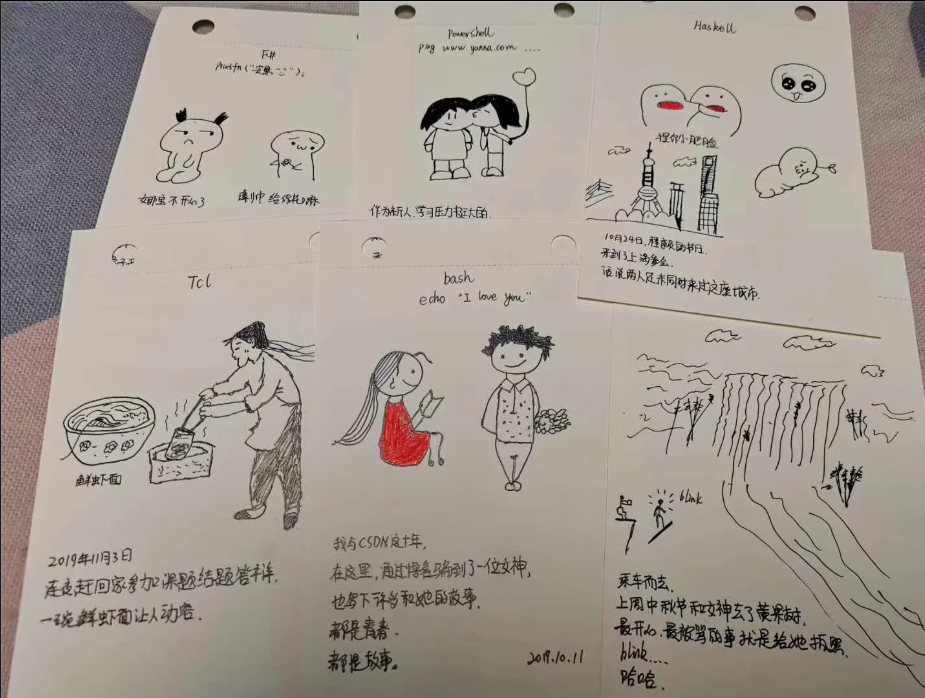 F#
Powershell
ping www.yanna.com ....
作为新人,学习压力挺大的.
Haskell
捏你小肥脸
10月24日,程序员的节日.
来到了上海参会.
话说两人还未同时来过这座城市.
娜宝不开心了
给你挠挠
Tcl
鲜虾面
2019年11月3日
连夜赶回家参加课题结题答辩.
一碗鲜虾面让人动容.
bash
echo "I love you"
我与CSDN这十年,
在这里,通过博客骗到了一位女神,
也写下许多和她的故事.
都是青春.
都是故事。
2019.10.11
blink
乘车而去.
上周中秋节和女神去了黄果树.
最开心、最被骂的事就是给她拍照.
blink....
哈哈.